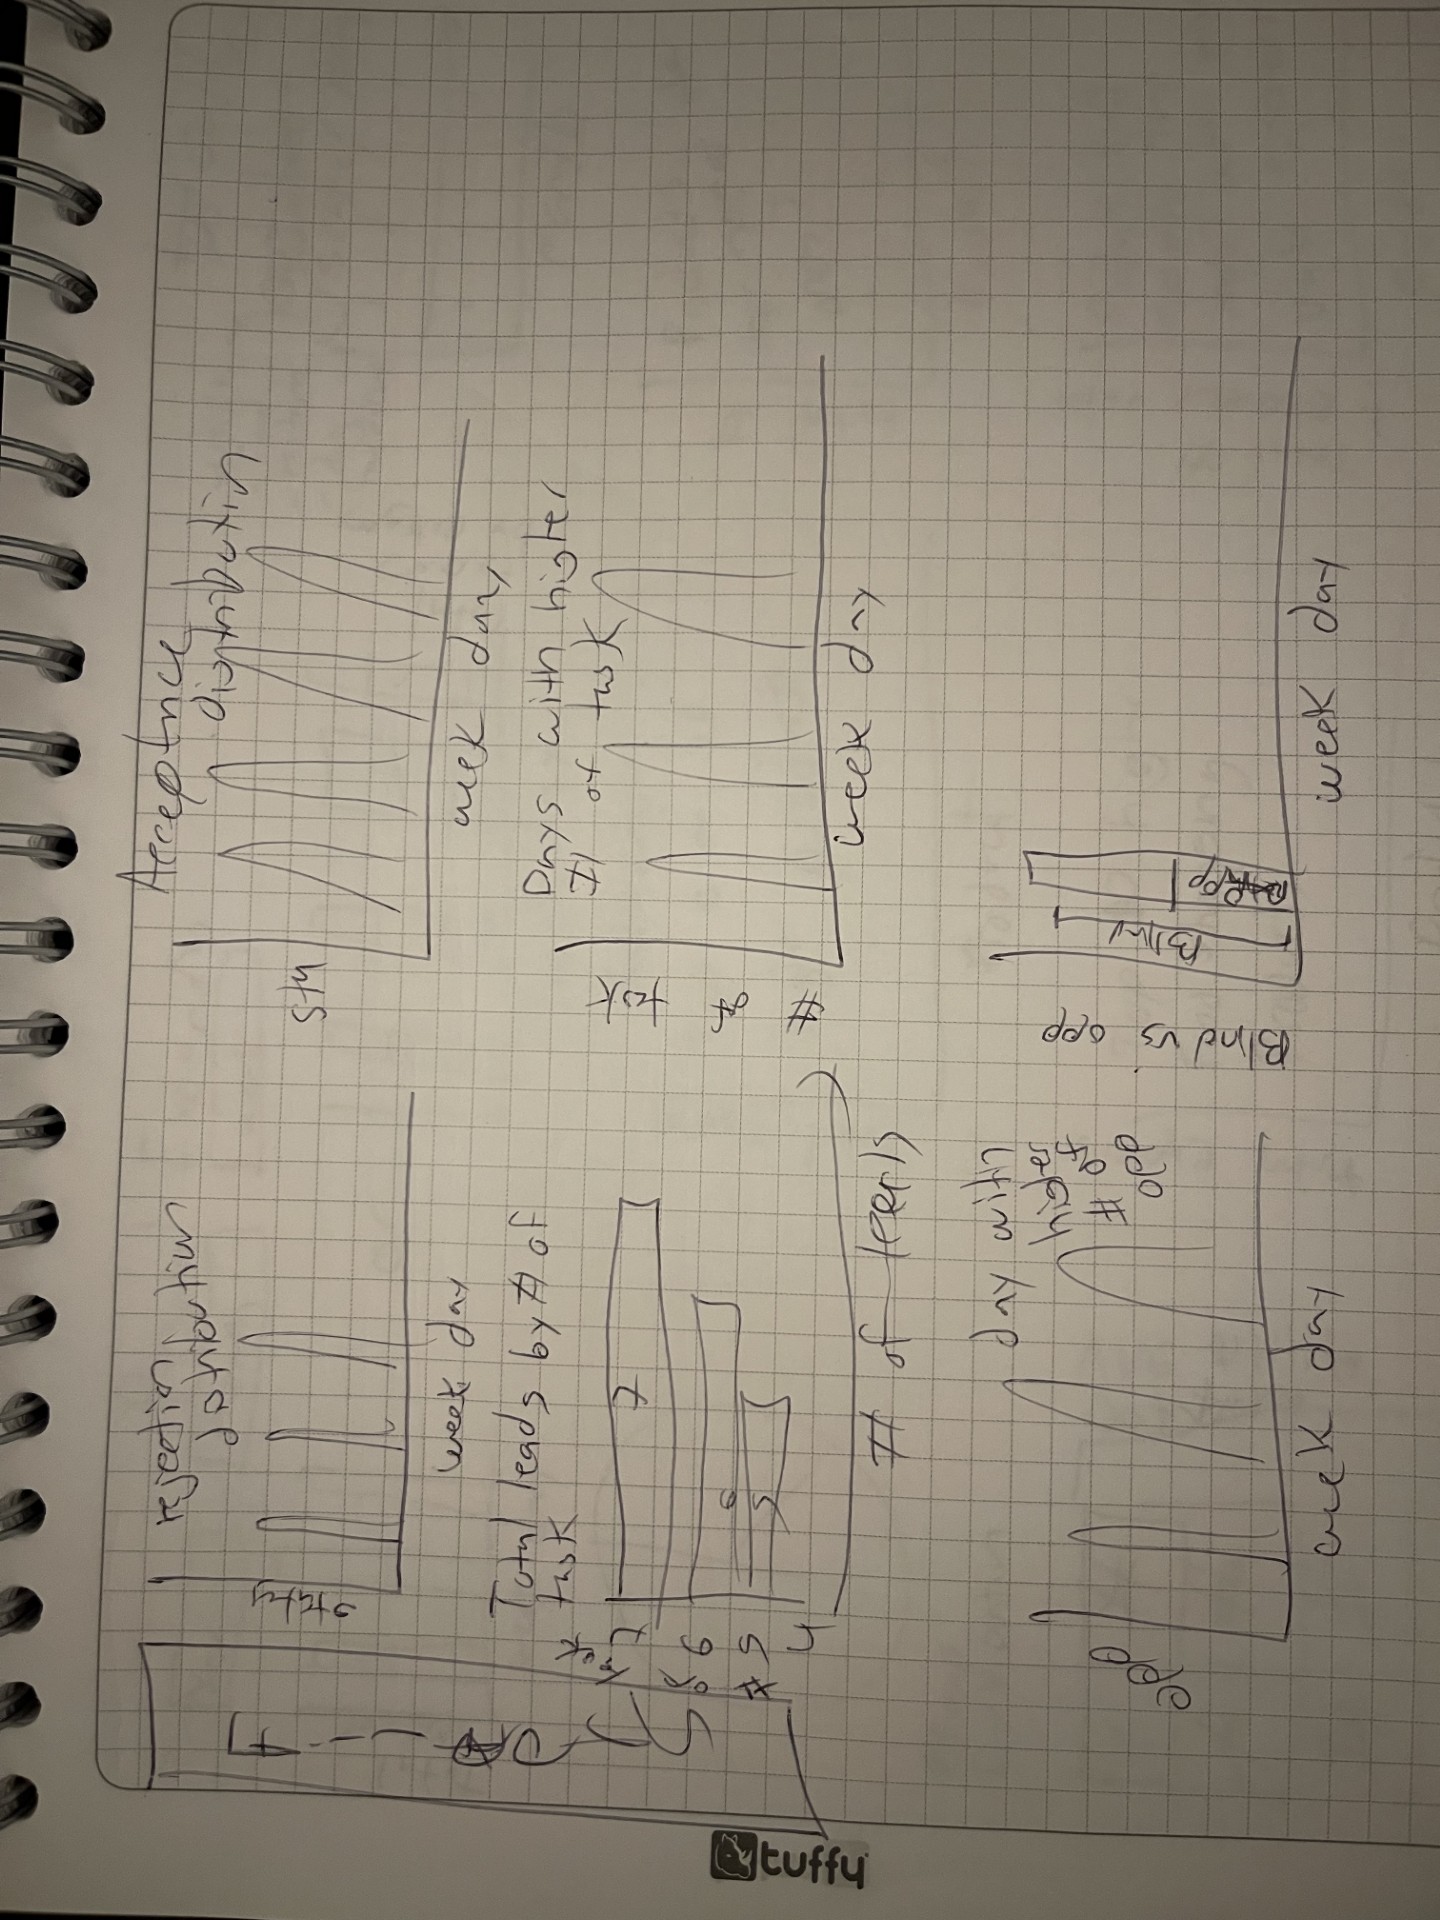 rejection
distribution
week day
Acceptnce
distributin
week day
Total leads by # of
task
7
7
6
6
# 5
5
4
# of
Days with higher
# of task
# of task
week day
day with
higher
# of
opp
opp
week day
Blind vs opp
Blind
opp
week day
tuffy